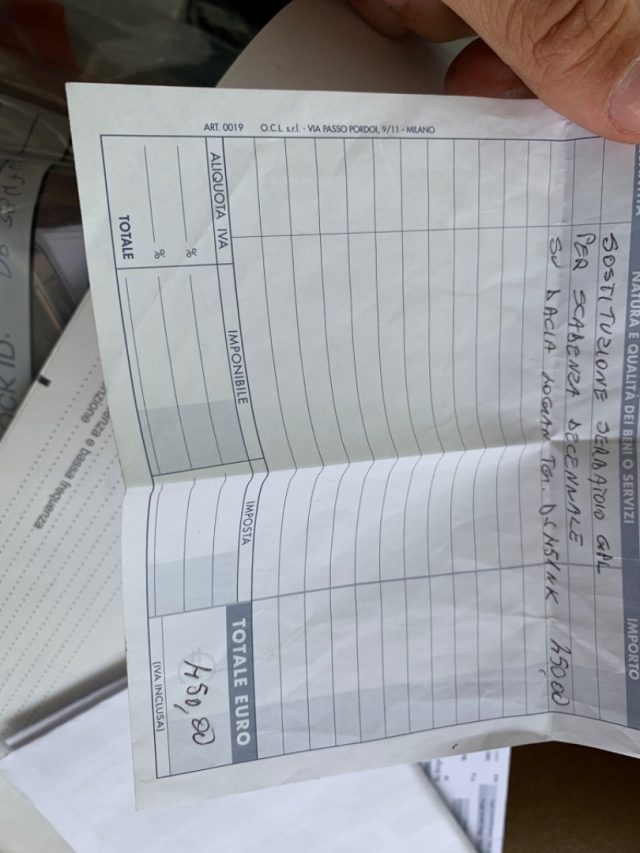 NATURA E QUALITÀ DEI BENI O SERVIZI
IMPORTO
SOSTITUZIONE SERBATOIO GPL
PER SCADENZA DECENNALE
SU DACIA LOGAN
450,00
ALIQUOTA IVA
IMPONIBILE
IMPOSTA
TOTALE EURO
%
%
450,00
TOTALE
(IVA INCLUSA)
ART. 0019 O.C.L. s.r.l. - VIA PASSO PORDOI, 9/11 - MILANO
enza e bassa frequenza
nzione